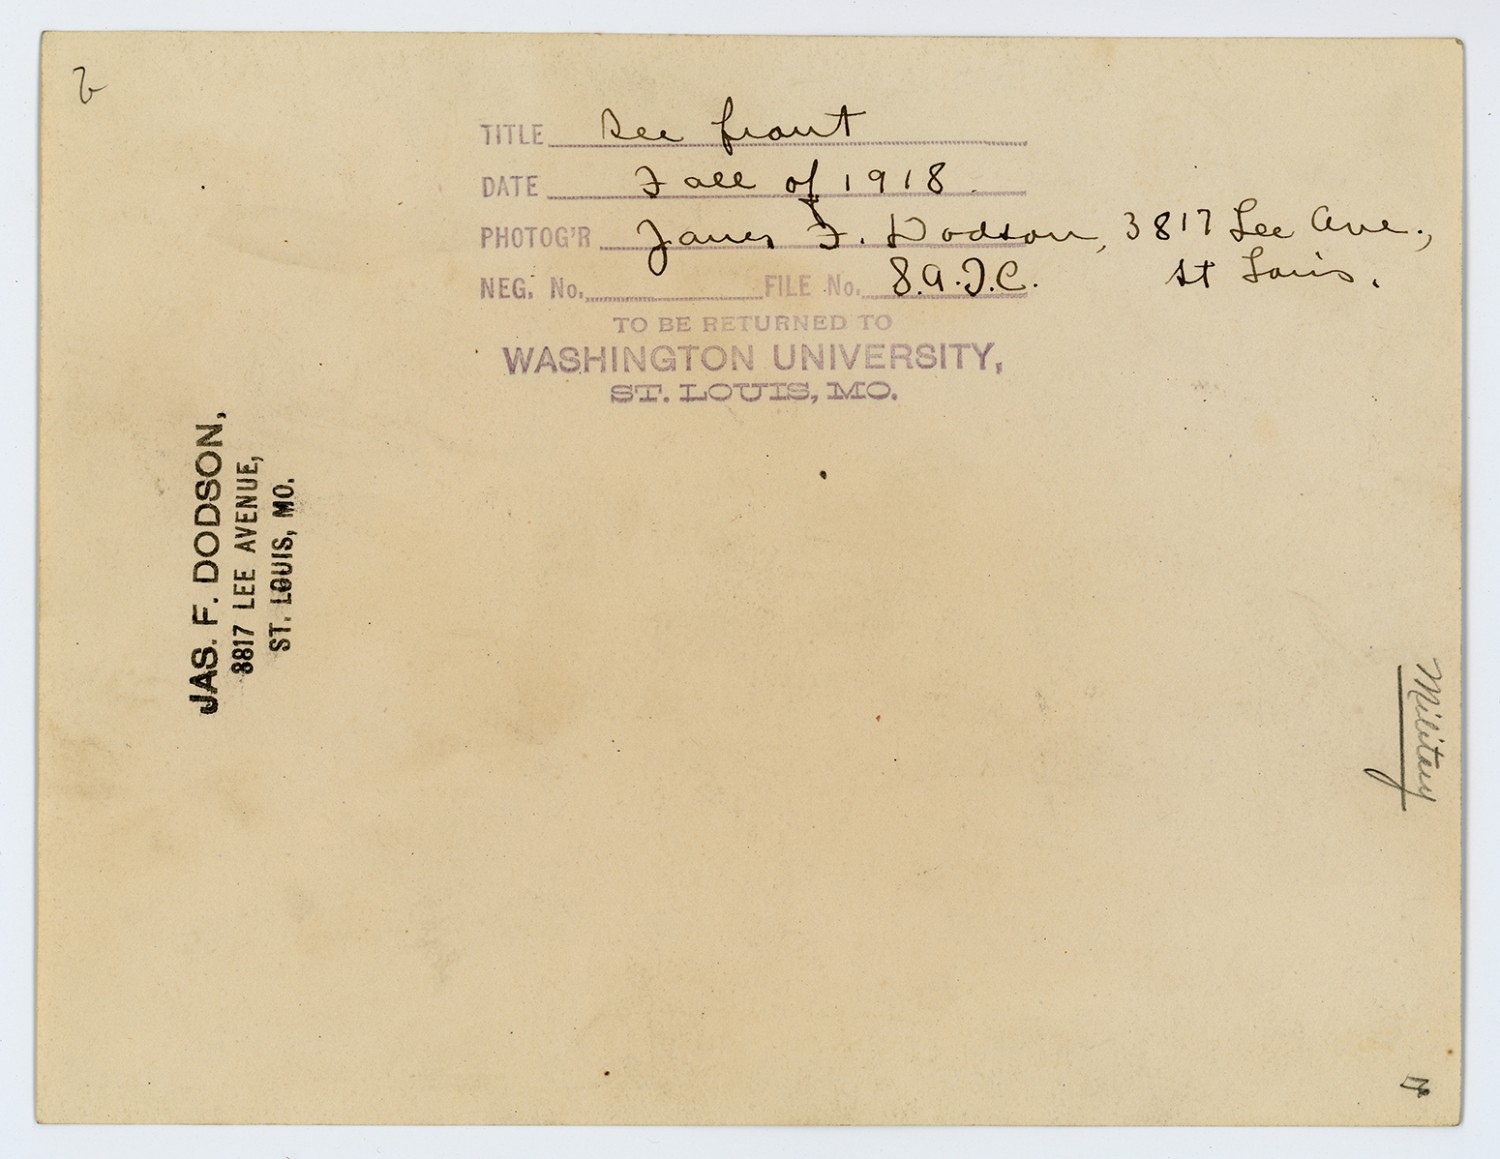 TITLE See front
DATE Fall of 1918.
PHOTOG'R James F. Dodson, 3817 Lee Ave.,
St Louis.
NEG. No. FILE No. S.A.T.C.
TO BE RETURNED TO
WASHINGTON UNIVERSITY,
ST. LOUIS, MO.
JAS. F. DODSON,
3817 LEE AVENUE,
ST. LOUIS, MO.
Military